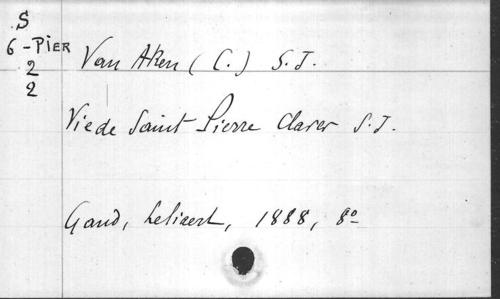 S
6-PIER
2
2
Van Aken (C.) S.J.
Vie de Saint Pierre Claver S.J.
Gand, Leliaert, 1888, 8º